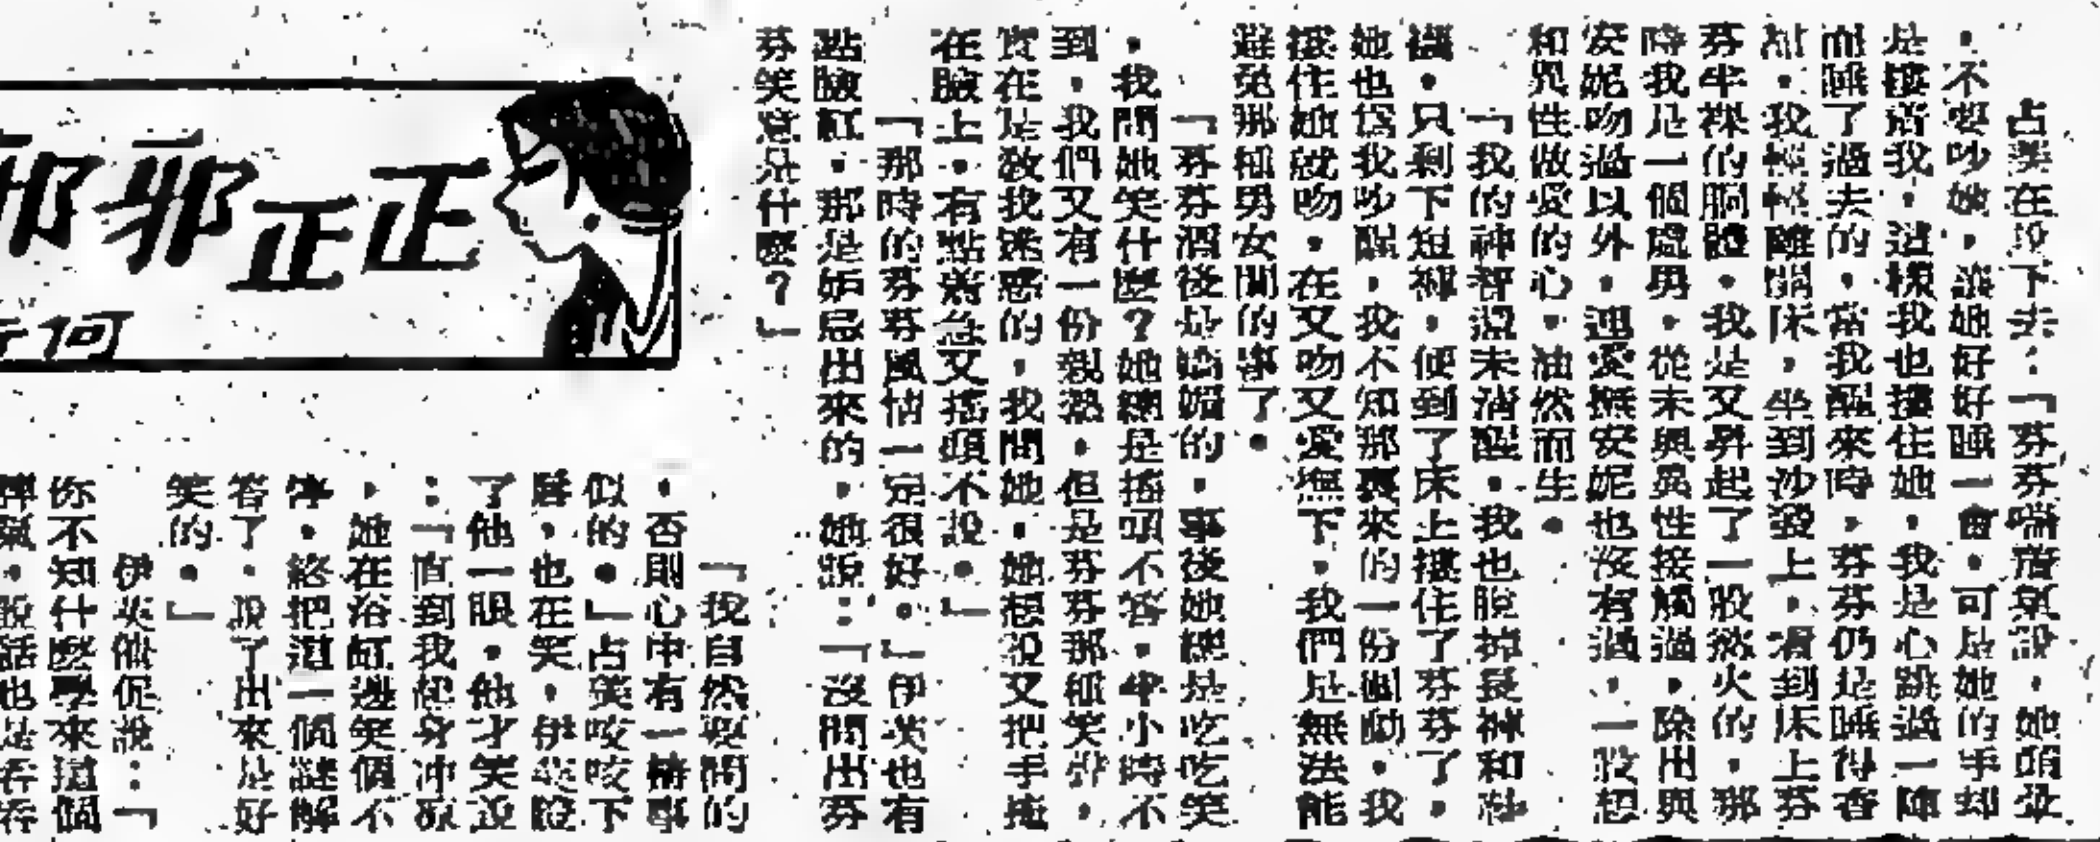 占美在說下去：「芬芬喘着氣說，她
，不要吵她，讓她好好睡一會。可是她的手却
是摟着我，這樣我也摟住她，我是心跳過一陣
而睡了過去的，當我醒來時，芬芬仍是睡得香
甜。我輕輕離開床，坐到沙發上，看到床上芬
芬半裸的胴體。我是又昇起了一股慾火的，那
時我是一個處男，從未與異性接觸過，除出與
安妮吻過以外，連愛撫安妮也沒有過，一股想
和異性做愛的心，油然而生。
「我的神智還未清醒。我也脫掉長褲和
襪，只剩下短褲，便到了床上摟住了芬芬了。
她也為我吵醒，我不知那裏來的一份衝動，我
摟住她就吻，在又吻又愛撫下，我們是無法能
避免那種男女間的事了。
「芬芬酒後是嬌媚的，事後她總是吃吃笑
，我問她笑什麼？她總是搖頭不答，半小時不
到，我們又有一份親熱，但是芬芬那種笑聲，
實在是敎我迷惑的，我問她，她想說又把手掩
在臉上，有點羞意又搖頭不說。」
「那時的芬芬風情一定很好。」伊芙也有
點臉紅，那是妒忌出來的，她說：「沒問出芬
芬笑意是什麼？」
正正邪邪
何
「我自然要問的
，否則心中有一樁事
似的。」占美咬咬下
唇，也在笑，伊芙瞪
了他一眼，他才笑說
：「直到我起身冲涼
，她在浴缸邊笑個不
停，終把這一個謎解
答了，說了出來是好
笑的。」
伊芙催促說：「
你不知什麼學來這個
脾氣，說話也是吞吞